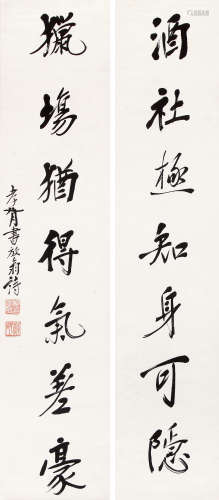 酒社極知身可隱
獵場猶得氣差豪
孝胥書放翁詩